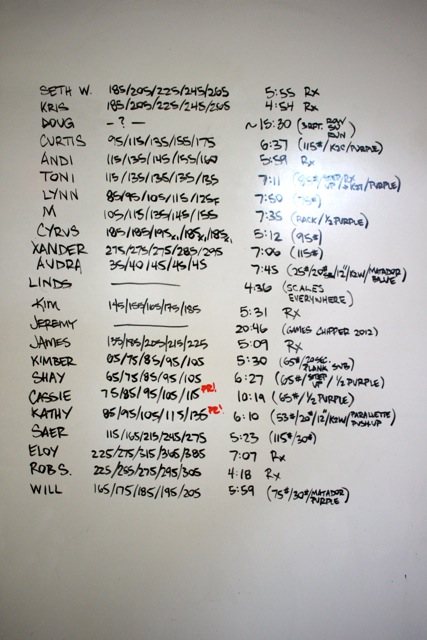 SETH W. 185/205/225/245/265 5:55 Rx
KRIS 185/205/225/245/265 4:54 Rx
DOUG - ? - ~15:30 (3RFT. ROW SU RUN)
CURTIS 95/115/135/155/175 6:37 (115#/K2C/PURPLE)
ANDI 115/135/145/155/160 5:59 Rx
TONI 115/135/135/135/135 7:11 /PURPLE)
LYNN 85/95/105/115/125F 7:50 (75#)
M 105/115/135/145/155 7:35 (RACK/½ PURPLE)
CYRUS 185/185/195x1/185x1/185x1 5:12 (95#)
XANDER 275/275/275/285/295 7:06 (115#)
AUDRA 35/40/45/45/45 7:45 (25#/20#/12"/K2W/MATADOR BLUE)
LINDS 4:36 (SCALES EVERYWHERE)
KIM 145/155/165/175/185 5:31 Rx
JEREMY 20:46 (GAMES CHIPPER 2012)
JAMES 155/195/205/215/225 5:09 Rx
KIMBER 65/75/85/95/105 5:30 (65#/20SEC. PLANK SUB)
SHAY 65/75/85/95/105 6:27 (65#/STEP UP/½ PURPLE)
CASSIE 75/85/95/105/115 PR! 10:19 (65#/½ PURPLE)
KATHY 85/95/105/115/135 PR! 6:10 (53#/20#/12"/K2W/PARALLETTE PUSH-UP)
SAER 115/165/215/245/275 5:23 (115#/30#)
ELOY 225/275/315/365/385 7:07 Rx
ROB S. 225/255/275/295/305 4:18 Rx
WILL 165/175/185/195/205 5:59 (75#/30#/MATADOR PURPLE)